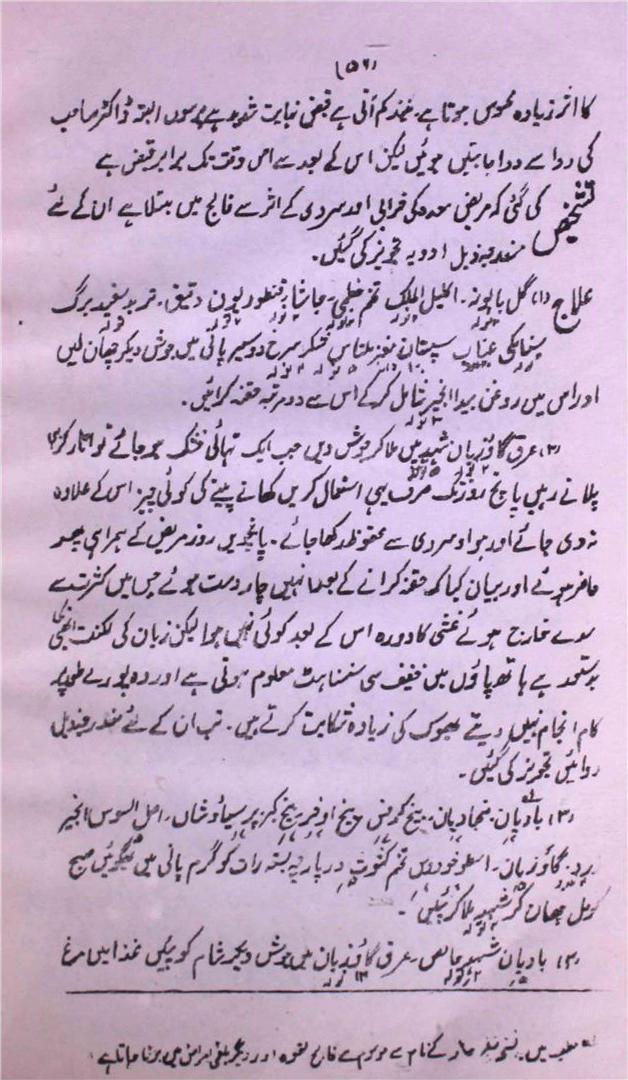 (۵۶)
کا اثر زیادہ محسوس ہوتا ہے۔ نیند کم آتی ہے قبض نہایت شدید ہے پرسوں البتہ ڈاکٹر صاحب
کی دوا سے دوا جابتیں ہوئیں لیکن اس کے بعد سے اس وقت تک برابر قبض ہے
تشخیص کی گئی کہ مریض معدہ کی خرابی اور سردی کے اثر سے فالج میں مبتلا ہے ان کے لئے
مندرجہ ذیل ادویہ تجویز کی گئیں۔
علاج (۱) گل بابونہ۔ اکلیل الملک تخم خطمی۔ حاشا۔ قنطوریون دقیق۔ تربد سفید برگ
سنامکی عناب سپستان مغز املتاس شکر سرخ دو سیر پانی میں جوش دیکر چھان لیں
اور اس میں روغن بیدانجیر شامل کر کے اس سے دو مرتبہ حقنہ کرائیں۔
(۲) عرق گاؤزبان شہد میں ملا کر جوش دیں جب ایک تہائی خشک ہو جائے تو اتار کر
پلاتے رہیں پانچ روز تک صرف یہی استعمال کریں کھانے پینے کی کوئی چیز اس کے علاوہ
نہ دی جائے اور ہوا و سردی سے محفوظ رکھا جائے۔ پانچویں روز مریض کے ہمراہی پھر
حاضر ہوئے اور بیان کیا کہ حقنہ کرانے کے بعد انہیں چار دست ہوئے جس میں کثرت سے
سدے خارج ہوئے غشی کا دورہ اس کے بعد کوئی نہیں ہوا لیکن زبان کی لکنت ابھی
بدستور ہے ہاتھ پاؤں میں خفیف سی سنسناہٹ معلوم ہوتی ہے اور وہ پورے طور پر
کام انجام نہیں دیتے بھوک کی زیادہ شکایت کرتے ہیں۔ تب ان کے لئے مندرجہ ذیل
دوائیں تجویز کی گئیں۔
(۳) بادیان۔ بیخ بادیان۔ بیخ کرفس بیخ اذخر بیخ کبر پرسیاؤشاں۔ اصل السوس انجیر
زرد۔ گاؤزبان۔ اسطوخودوس تخم کثوث در پارچہ بستہ رات کو گرم پانی میں بھگوئیں صبح
کو مل چھان کر شہد ملا کر پئیں۔
(۴) بادیان شہد خالص۔ عرق گاؤزبان میں جوش دیکر شام کو پئیں غذا میں مرغ
مطب میں کے نام سے موسوم ہے فالج لقوہ اور دیگر بلغمی امراض میں برتا جاتا ہے۔